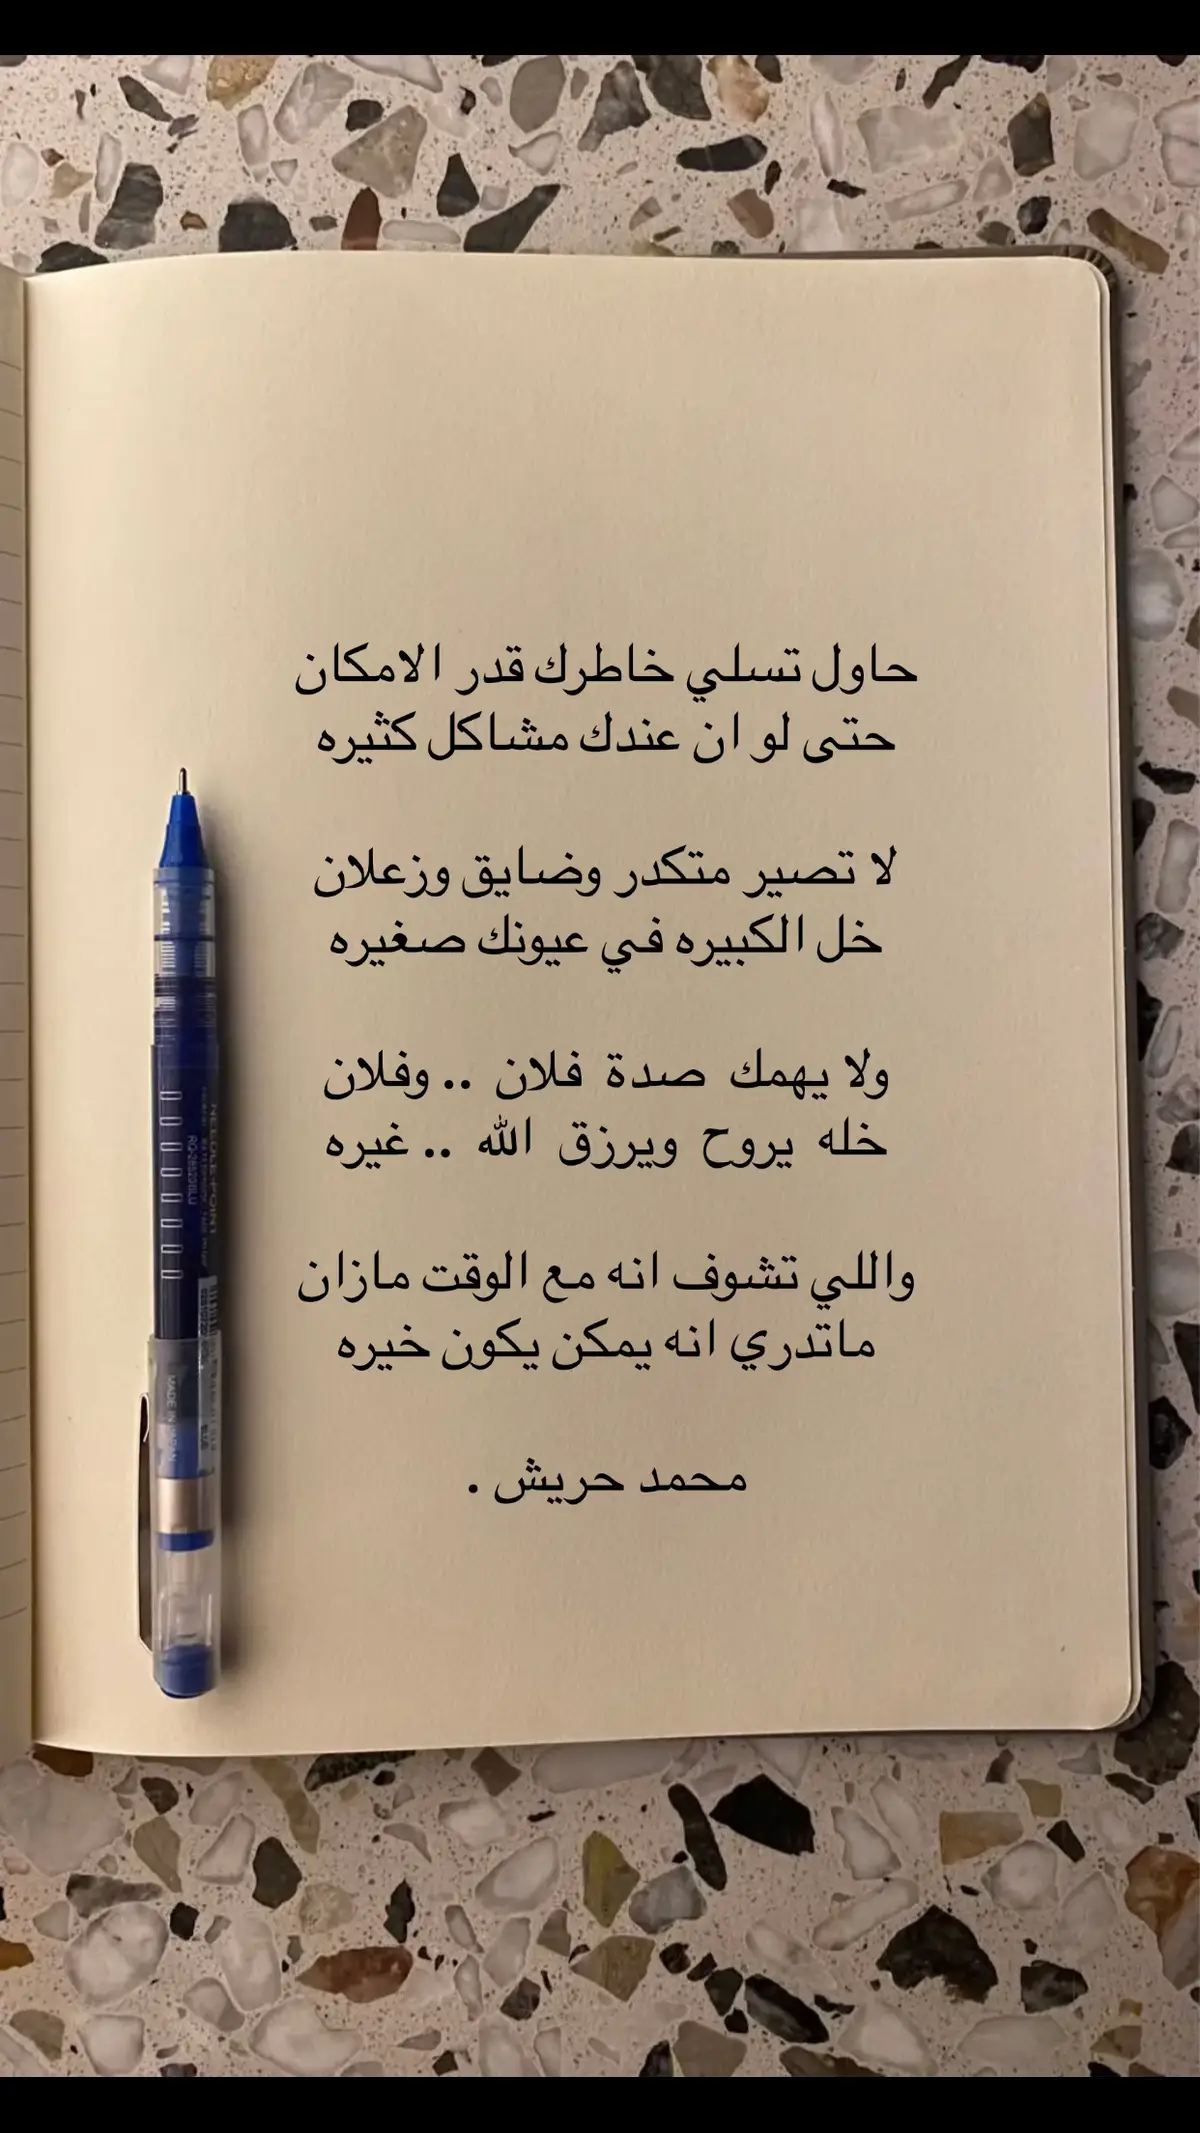 حاول تسلي خاطرك قدر الامكان
حتى لو ان عندك مشاكل كثيره
لا تصير متكدر وضايق وزعلان
خل الكبيره في عيونك صغيره
ولا يهمك صدة فلان .. وفلان
خله يروح ويرزق الله .. غيره
واللي تشوف انه مع الوقت مازان
ماتدري انه يمكن يكون خيره
محمد حريش .
NEEDLE-POINT
MADE IN JAPAN
BLUE